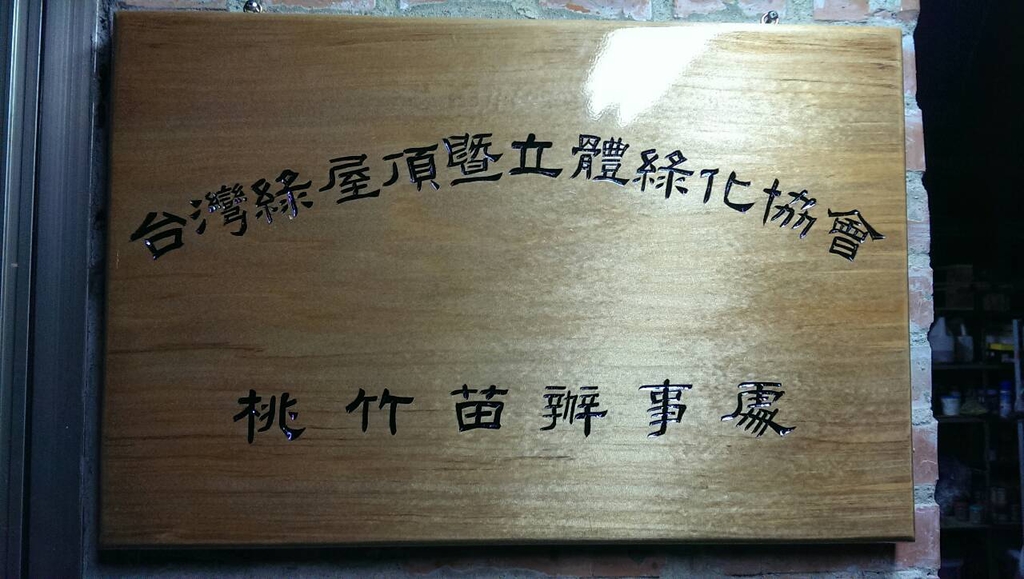 台灣綠屋頂暨立體綠化協會
桃竹苗辦事處